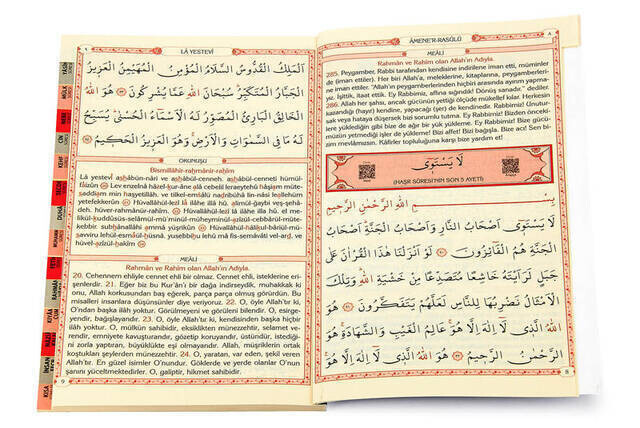 ٩
LÂ YESTEVÎ
اَلْمَلِكُ الْقُدُّوسُ السَّلَامُ الْمُؤْمِنُ الْمُهَيْمِنُ الْعَزِيزُ
الْجَبَّارُ الْمُتَكَبِّرُ سُبْحَانَ اللهِ عَمَّا يُشْرِكُونَ ﴿٢٣﴾ هُوَ اللهُ
الْخَالِقُ الْبَارِئُ الْمُصَوِّرُ لَهُ الْاَسْمَاءُ الْحُسْنٰى يُسَبِّحُ
لَهُ مَا فِى السَّمٰوَاتِ وَالْاَرْضِ وَهُوَ الْعَزِيزُ الْحَكِيمُ ﴿٢٤﴾
OKUNUŞU
Bismillâhir-rahmânir-rahîm
Lâ yestevî ashâbün-nâri ve ashâbül-cenneh. ashâbül-cenneti hümül-
fâizûn Lev enzelnâ hâzel-kur-âne alâ cebelil leraeytehû hâşiam müte-
saddiam min haşyetillâh. ve tilkel-emsâlü nadribühâ lin-nâsi leallehüm
yetefekkerûn Hüvallâhül-lezî lâ ilâhe illâ hû. alimül-ğaybi veş-şehâ-
deh. hüver-rahmânür-rahîm. Hüvallâhül-lezî lâ ilâhe illâ hû. el me-
likül-kuddûsüs-selâmül-mü'minül-müheyminül-azîzül-cebbârül-müte-
kebbir. sübhânallâhi ammâ yüşrikûn Hüvallâhül-hâlikul-bâriül-mü-
savviru lehül-esmâül-hüsnâ. yusebbihu lehû mâ fis-semâvâti vel-ard. ve
hüvel-azîzül-hakîm
MEÂLİ
Rahman ve Rahîm olan Allah'ın Adıyla.
20. Cehennem ehliyle cennet ehli bir olmaz. Cennet ehli, isteklerine eri-
şenlerdir. 21. Eğer biz bu Kur'ân'ı bir dağa indirseydik, muhakkak ki
onu, Allah korkusundan baş eğerek, parça parça olmuş görürdün. Bu
misalleri insanlara düşünsünler diye veriyoruz. 22. O, öyle Allah'tır ki,
O'ndan başka ilâh yoktur. Görülmeyeni ve görüleni bilendir. O, esirge-
yendir, bağışlayandır. 23. O, öyle Allah'tır ki, kendisinden başka hiçbir
ilâh yoktur. O, mülkün sahibidir, eksiklikten münezzehtir, selamet ve-
rendir, emniyete kavuşturandır, gözetip koruyandır, üstündür, istediği-
ni zorla yaptıran, büyüklükte eşi olmayandır. Allah, müşriklerin ortak
koştukları şeylerden münezzehtir. 24. O, yaratan, var eden, şekil veren
Allah'tır. En güzel isimler O'nundur. Göklerde ve yerde olanlar O'nun
şanını yüceltmektedirler. O, galiptir, hikmet sahibidir.
9
٨
ÂMENE'R-RASÛLÜ
MEÂLİ
Rahman ve Rahim olan Allah'ın Adıyla.
285. Peygamber, Rabbi tarafından kendisine indirilene iman etti, müminler
de (iman ettiler). Her biri Allah'a, meleklerine, kitaplarına, peygamberleri-
ne iman ettiler. "Allah'ın peygamberlerinden hiçbiri arasında ayırım yapma-
yız. İşittik, itaat ettik. Ey Rabbimiz, affına sığındık! Dönüş sanadır." dediler.
286. Allah her şahsı, ancak gücünün yettiği ölçüde mükellef kılar. Herkesin
kazandığı (hayır) kendine, yapacağı (şer) de kendinedir. Rabbimiz! Unutur-
sak veya hataya düşersek bizi sorumlu tutma. Ey Rabbimiz! Bizden önceki-
lere yüklediğin gibi bize de ağır bir yük yükleme. Ey Rabbimiz! Bize gücü-
müzün yetmediği işler de yükleme! Bizi affet! Bizi bağışla. Bize acı! Sen bi-
zim mevlâmızsın. Kâfirler topluluğuna karşı bize yardım et!
لَا يَسْتَوٖى
(HAŞR SÛRESİ'NİN SON 5 AYETİ)
بِسْمِ اللهِ الرَّحْمٰنِ الرَّحِيمِ
لَا يَسْتَوٖى اَصْحَابُ النَّارِ وَاَصْحَابُ الْجَنَّةِ اَصْحَابُ
الْجَنَّةِ هُمُ الْفَائِزُونَ ﴿٢٠﴾ لَوْ اَنْزَلْنَا هٰذَا الْقُرْاٰنَ عَلٰى
جَبَلٍ لَرَاَيْتَهُ خَاشِعًا مُتَصَدِّعًا مِنْ خَشْيَةِ اللهِ وَتِلْكَ
الْاَمْثَالُ نَضْرِبُهَا لِلنَّاسِ لَعَلَّهُمْ يَتَفَكَّرُونَ ﴿٢١﴾ هُوَ
اللهُ الَّذٖى لَا اِلٰهَ اِلَّا هُوَ عَالِمُ الْغَيْبِ وَالشَّهَادَةِ هُوَ
الرَّحْمٰنُ الرَّحِيمُ ﴿٢٢﴾ هُوَ اللهُ الَّذٖى لَا اِلٰهَ اِلَّا هُوَ
8